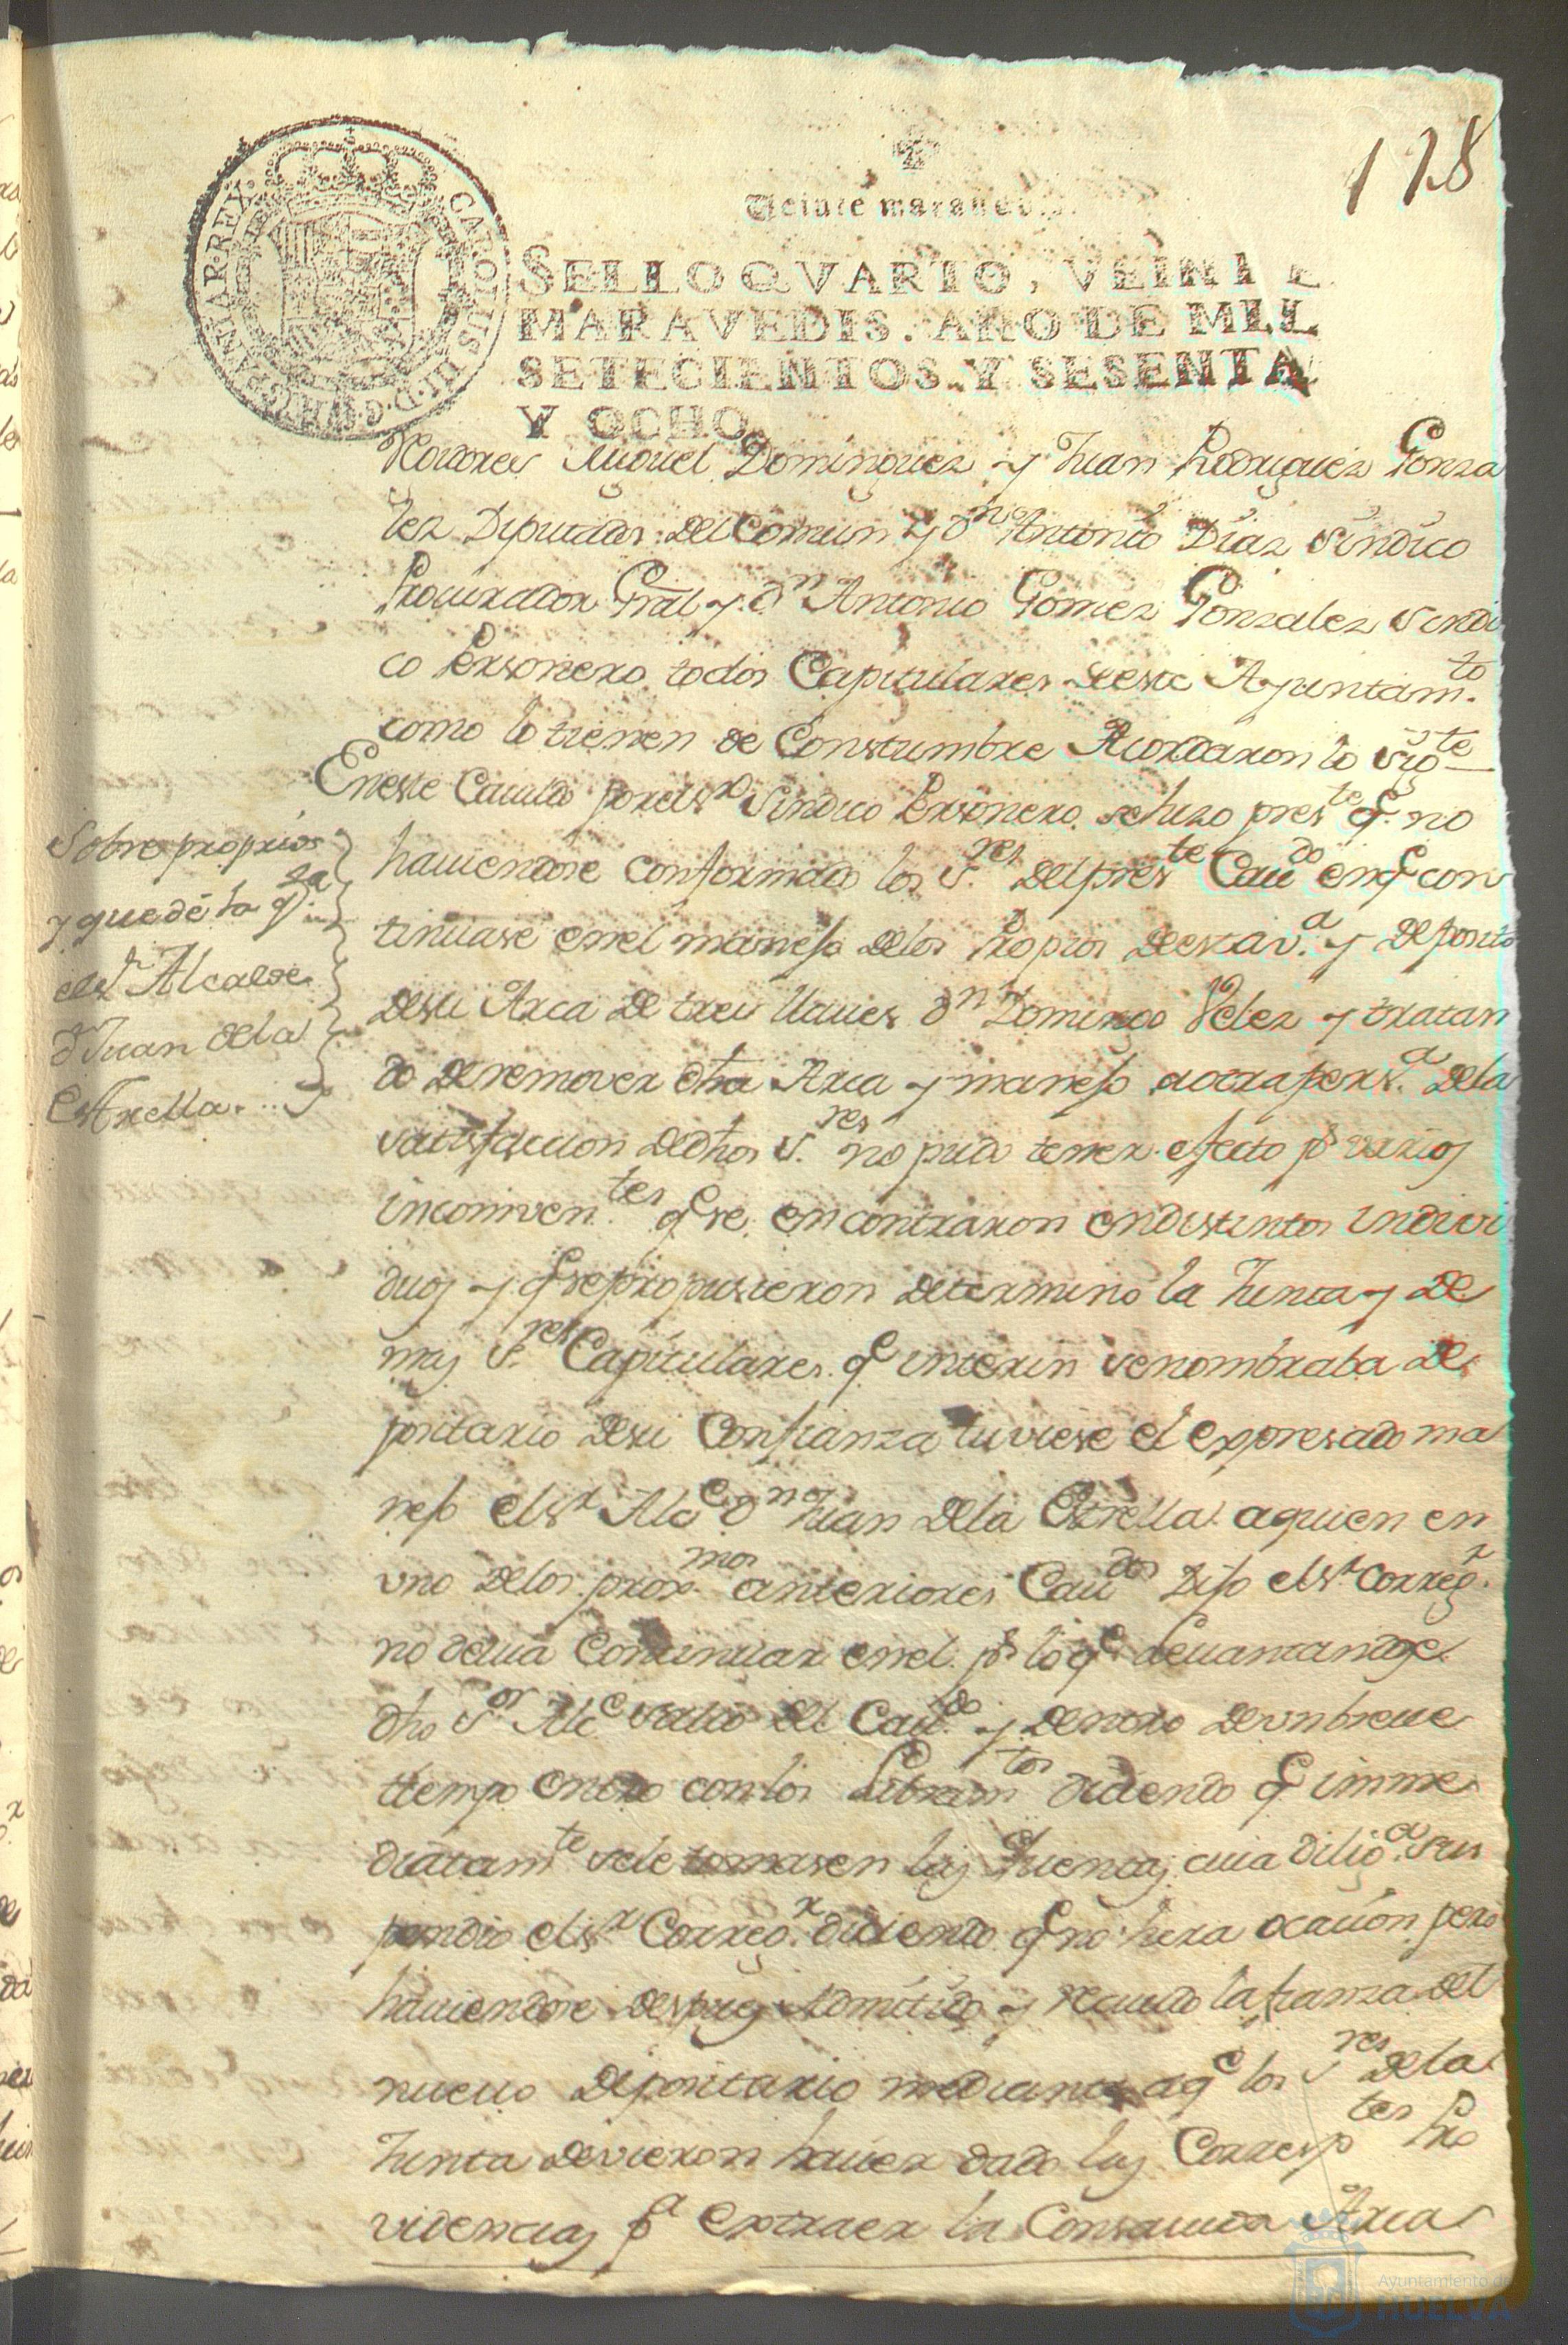 128
Veinte maraved
SELLO QVARTO, VEINTE
MARAVEDIS. AÑO DE MIL
SETECIENTOS Y SESENTA
Y OCHO.
CAROLUS III D.G. HISPANIAR REX
Miguel Dominguez y Juan Rodriguez Gonza
lez Diputados del Comun y dn Antonio Diaz Sindico
Procurador Gral y dn Antonio Gomez Gonzalez Sindi
co Personero todos Capitulares de este Ayuntamto
como lo tienen de Constumbre Acordaron lo sigte
En este Cauildo por el sr Sindico Personero se hizo preste q no
Sobre propios
y que dé la
el sr Alcalde
d Juan de la
Estrella
hauiendose conformado los Sres del preste Caudo en q con
tinuase en el manejo de los Propios de esta va y deposito
de su Arca de tres llaues dn Domingo Velez y tratan
do de remover dha Arca y manejo a otra persa de la
satisfaccion de dhos Sres no pudo tener efecto pr varios
inconiventes q se encontraron en distintos indivi
duos y q se propusieron determinó la Junta y de
mas Sres Capitulares q interin se nombraba de
positario de su Confianza tuviese el expresado ma
nejo el sr Alce dn Juan de la Estrella a quien en
vno de los proxmos anteriores Caudos Dijo el sr Corregr
no devia Continuar en el pr lo q leuantandose
dho Sor Alce salio del Caudo y dentro de vn breue
tiempo entró con los Libramtos diciendo q imme
diatamte se le tomasen las Quentas cuia diliga sus
pendio el sr Corregr diciendo q no hera ocasion pero
hauiendose despues Admitido y reciuido la fianza del
nueuo depositario mediante a q los Sres de la
Junta devieron hauer dado las Corresptes Pro
videncias pa extraer la Consauida Arca
Ayuntamiento de
HUELVA